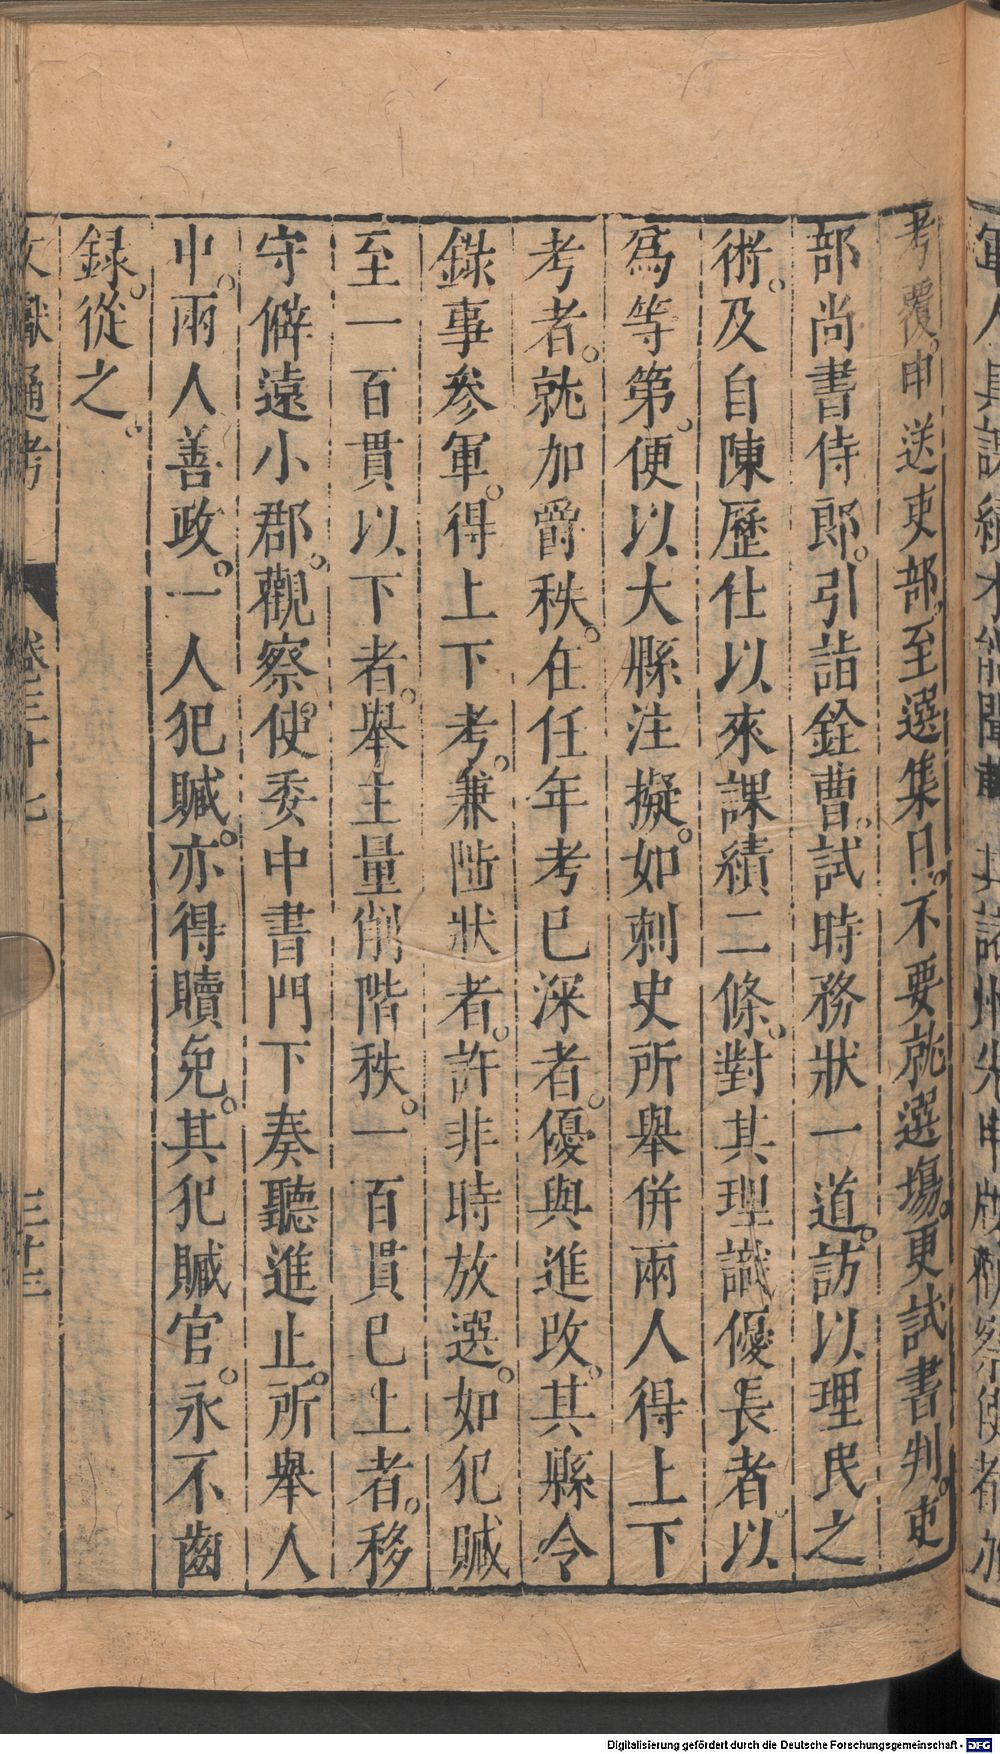 考覆。申送吏部。至選集日。不要就選場。更試書判。吏
部尚書侍郎。引詣銓曹。試時務狀一道。訪以理民之
術。及自陳歷仕以來課績二條。對其理識優長者。以
爲等第。便以大縣注擬。如刺史所舉併兩人得上下
考者。就加爵秩。在任年考已深者。優與進改。其縣令
錄事參軍。得上下考。兼陟狀者。許非時放選。如犯贓
至一百貫以下者。舉主量削階秩。一百貫已上者。移
守僻遠小郡。觀察使。委中書門下奏聽進止。所舉人
中。兩人善政。一人犯贓。亦得贖免。其犯贓官。永不齒
錄。從之。
文獻通考 卷三十七 三十三
Digitalisierung gefördert durch die Deutsche Forschungsgemeinschaft - DFG